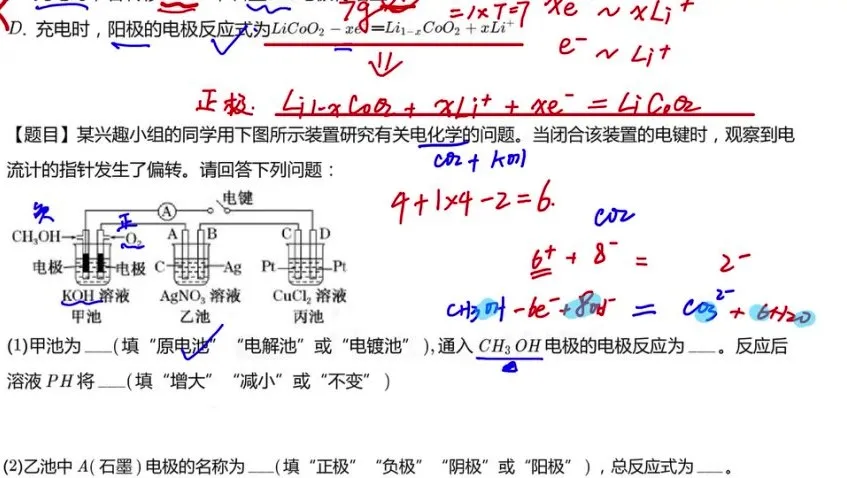 7g =1×7=7 xe⁻ ~ xLi⁺
D. 充电时，阳极的电极反应式为LiCoO₂ − xe⁻=Li₁₋ₓCoO₂ + xLi⁺
e⁻ ~ Li⁺
正极: Li1-xCoO2 + xLi⁺ + xe⁻ = LiCoO2
【题目】某兴趣小组的同学用下图所示装置研究有关电化学的问题。当闭合该装置的电键时，观察到电
CO2 + KOH
流计的指针发生了偏转。请回答下列问题：
4+1×4-2=6.
负 正 A 电键
CO2
CH₃OH O₂ A B C D
6⁺ + 8⁻ = 2⁻
电极 电极 C Ag Pt Pt
KOH 溶液 AgNO₃ 溶液 CuCl₂ 溶液
CH3OH -6e⁻+8OH⁻ = CO3²⁻ + 6H2O
甲池 乙池 丙池
(1)甲池为 ___(填“原电池”“电解池”或“电镀池”),通入 CH₃OH 电极的电极反应为 ___。反应后
溶液 PH 将 ___(填“增大”“减小”或“不变”)
(2)乙池中 A(石墨) 电极的名称为 ___(填“正极”“负极”“阴极”或“阳极”)，总反应式为 ___。